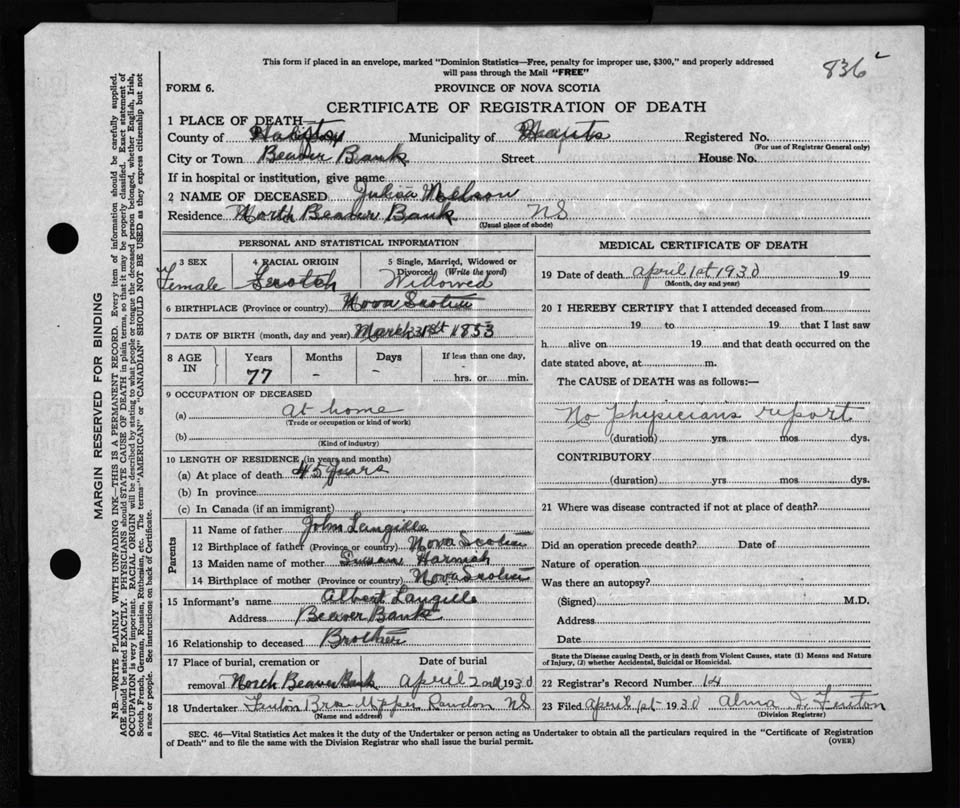 This form if placed in an envelope, marked "Dominion Statistics—Free, penalty for improper use, $300," and properly addressed
will pass through the Mail "FREE"
836
FORM 6.
PROVINCE OF NOVA SCOTIA
CERTIFICATE OF REGISTRATION OF DEATH
1 PLACE OF DEATH—
County of Municipality of Hants Registered No.
(For use of Registrar General only)
City or Town Beaver Bank Street House No.
If in hospital or institution, give name
2 NAME OF DECEASED Julia
Residence North Beaver Bank NS
(Usual place of abode)
PERSONAL AND STATISTICAL INFORMATION
3 SEX 4 RACIAL ORIGIN 5 Single, Married, Widowed or
Divorced (Write the word)
Female Scotch Widowed
6 BIRTHPLACE (Province or country) Nova Scotia
7 DATE OF BIRTH (month, day and year) March 31st 1853
8 AGE IN Years Months Days If less than one day,
77 - - hrs. or min.
9 OCCUPATION OF DECEASED
(a) at home
(Trade or occupation or kind of work)
(b)
(Kind of industry)
10 LENGTH OF RESIDENCE (in years and months)
(a) At place of death 45 years
(b) In province
(c) In Canada (if an immigrant)
Parents
11 Name of father John Langille
12 Birthplace of father (Province or country) Nova Scotia
13 Maiden name of mother Susan
14 Birthplace of mother (Province or country) Nova Scotia
15 Informant's name Albert Langille
Address Beaver Bank
16 Relationship to deceased Brother
17 Place of burial, cremation or Date of burial
removal North Beaver Bank April 2nd 1930
18 Undertaker Fenton Bros Upper Rawdon NS
(Name and address)
MEDICAL CERTIFICATE OF DEATH
19 Date of death April 1st 1930 19
(Month, day and year)
20 I HEREBY CERTIFY that I attended deceased from
19 to 19 that I last saw
h alive on 19 and that death occurred on the
date stated above, at m.
The CAUSE of DEATH was as follows:—
No physicians report
(duration) yrs. mos. dys.
CONTRIBUTORY
(duration) yrs. mos. dys.
21 Where was disease contracted if not at place of death?
Did an operation precede death? Date of
Nature of operation
Was there an autopsy?
(Signed) M.D.
Address
Date
State the Disease causing Death, or in death from Violent Causes, state (1) Means and Nature
of Injury, (2) whether Accidental, Suicidal or Homicidal.
22 Registrar's Record Number 14
23 Filed April 1st 1930 Alma I. Fenton
(Division Registrar)
SEC. 46—Vital Statistics Act makes it the duty of the Undertaker or person acting as Undertaker to obtain all the particulars required in the "Certificate of Registration
of Death" and to file the same with the Division Registrar who shall issue the burial permit. (OVER)
MARGIN RESERVED FOR BINDING
N.B.—WRITE PLAINLY WITH UNFADING INK—THIS IS A PERMANENT RECORD. Every item of information should be carefully supplied.
AGE should be stated EXACTLY. PHYSICIANS should STATE CAUSE OF DEATH in plain terms, so that it may be properly classified. Exact statement of
OCCUPATION is very important. RACIAL ORIGIN will be described by stating to what people or tongue the deceased person belonged, whether English, Irish,
Scotch, French, German, Russian, Ruthenian, etc. The terms "AMERICAN" or "CANADIAN" SHOULD NOT BE USED as they express citizenship but not
a race or people. See instructions on back of Certificate.